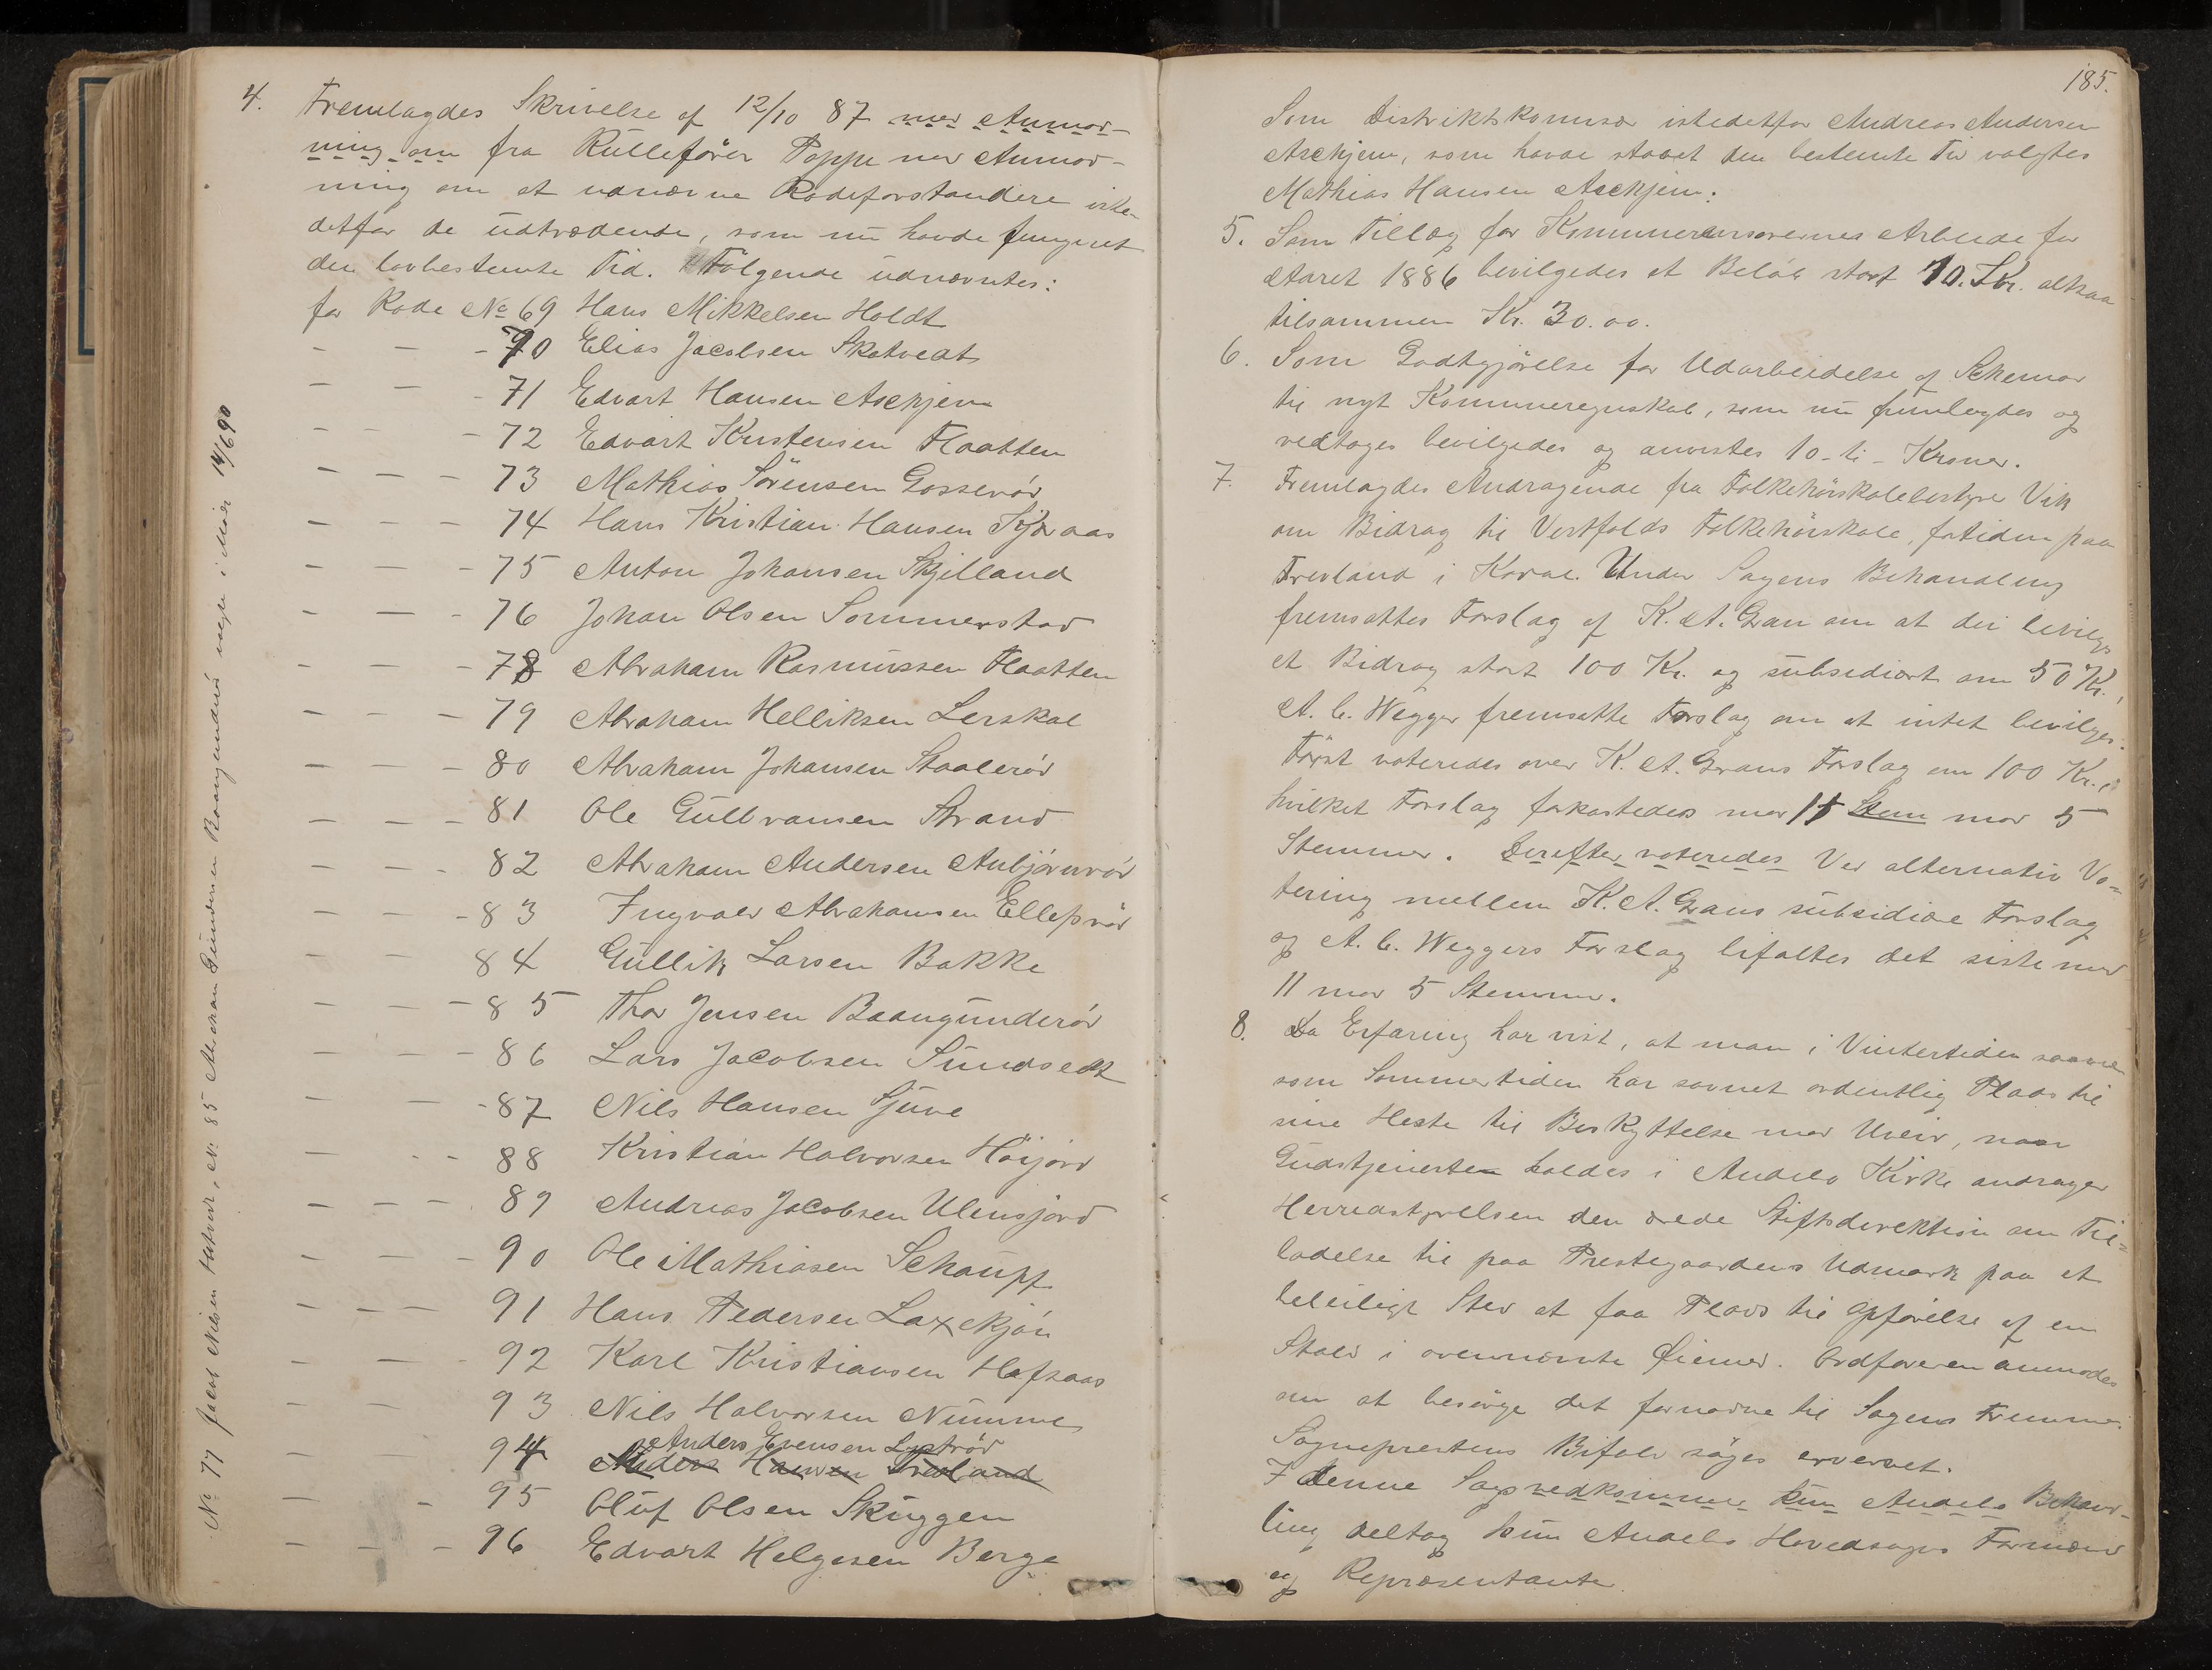 4. Fremlagdes Skrivelse af 12/10 87 med Anmod-
ning om fra Rullefører Poppe med Anmod-
ning om at udnævne Rodeforstandere iste-
detfor de udtrædende, som nu havde fungeret
den lovbestemte Tid. Følgende udnævntes:
for Rode No 69 Hans Mikkelsen Holdt
- - - 70 Elias Jacobsen Skatvedt
- - - 71 Edvart Hansen Askjem
- - - 72 Edvart Kristensen Flaatten
- - - 73 Mathias Sörensen Gosserød
- - - 74 Hans Kristian Hansen Kjæraas
- - - 75 Anton Johansen Skjelland
- - - 76 Johan Olsen Sommerstad
- - - 78 Abraham Rasmussen Flaatten
- - - 79 Abraham Helliksen Lerskal
- - - 80 Abraham Johansen Staalerød
- - - 81 Ole Gulbransen Strand
- - - 82 Abraham Andersen Anbjörnrød
- - - 83 Ingvald Abrahamsen Ellefsrød
- - - 84 Gullik Larsen Bakke
- - - 85 Thor Jensen Baangunderød
- - - 86 Lars Jacobsen Sundsedt
- - - 87 Nils Hansen Gjuve
- - - 88 Kristian Halvorsen Höijord
- - - 89 Andreas Jacobsen Ulensjord
- - - 90 Ole Mathiasen Schaupp
- - - 91 Hans Pedersen Laxekjön
- - - 92 Karl Kristiansen Hafsaas
- - 93 Nils Halvorsen Numme
Anders Evensen Lystrød
94 Anders Hansen Tredland
- - 95 Oluf Olsen Skuggen
- - - 96 Edvart Helgesen Berge
No 77 Jacob Nilsen No 85 Gundersen Baangunderød valgte i Møde 14/6 90
185.
Som Distriktskommisær istedetfor Andreas Andersen
Askjem, som havde staaet den bestemte Tid valgtes
Mathias Hansen Askjem.
5. Som Tillæg for Kommunerevisorernes Arbeide for
Aaret 1886 bevilgedes et Beløb stort 10. Kr. altsaa
tilsammen Kr. 30.00.
6. Som Godtgjörelse for Udarbeidelse af Skemaer
til nyt Kommuneregnskab, som nu fremlagdes og
vedtoges bevilgedes og anvistes 10 - ti - Kroner.
7. Fremlagdes Andragende fra Folkehöiskolebestyrer Vik
om Bidrag til Vestfolds Folkehöiskole, fortiden paa
Fresland i Kodal. Under Sagens Behandling
fremsattes Forslag af K. A. Gran om at der bevilges
et Bidrag stort 100 Kr. og subsidiært om 50 Kr.,
A. C. Wegger fremsatte Forslag om at intet bevilges.
Først voteredes over K. A. Grans Forslag om 100 Kr.,
hvilket Forslag forkastedes mod 11 Stem mod 5
Stemmer. Derefter voteredes Ved alternativ Vo-
tering mellem K. A. Grans subsidiære Forslag
og A. C. Weggers Forslag bifaltes det siste med
11 mod 5 Stemmer.
8. Da Erfaring har vist, at man i Vintertiden saavel
som Sommertiden har savnet ordentlig Plads til
sine Heste til Beskyttelse mod Uveir, naar
Gudstjenesten holdes i Andebo Kirke andrager
Herredstyrelsen den ærede Stiftsdirektion om Til-
ladelse til paa Prestegaardens Udmark paa et
beleiligt Sted at faa Plads til Opførelse af en
Stald i ovennævnte Øiemed. Ordføreren anmodes
om at besörge det fornødne til Sagens Fremme.
Sogneprestens Bifald söges ervervet.
I denne Sags vedkommer kun Andebo Behand-
ling deltog kun Andebo Hovedsogns Formænd
og Repræsentanter.